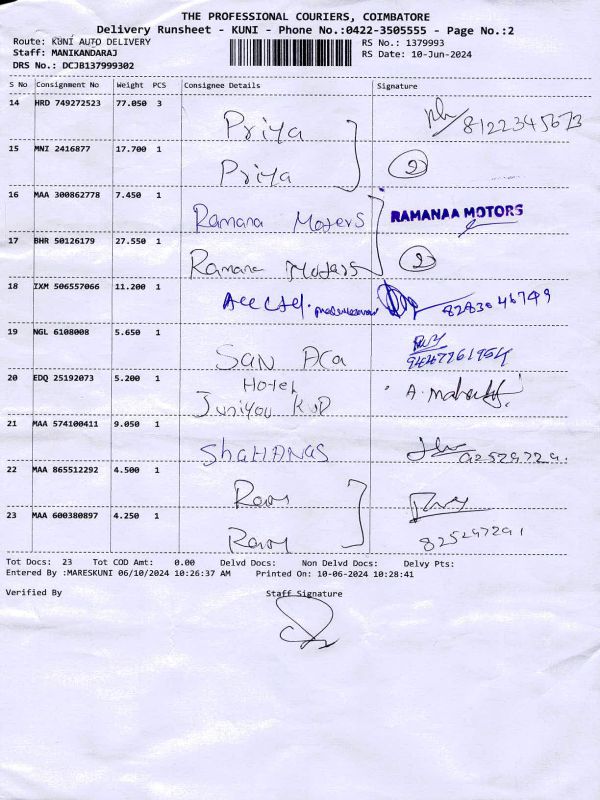 THE PROFESSIONAL COURIERS, COIMBATORE
Delivery Runsheet - KUNI - Phone No.:0422-3505555 - Page No.:2
Route: KUNI AUTO DELIVERY RS No.: 1379993
Staff: MANIKANDARAJ RS Date: 10-Jun-2024
DRS No.: DCJB137999302
S No Consignment No Weight PCS Consignee Details Signature
14 HRD 749272523 77.050 3 Priya 8122345673
15 MNI 2416877 17.700 1 Priya 2
16 MAA 300862778 7.450 1 Ramana Moters RAMANAA MOTORS
17 BHR 50126179 27.550 1 Ramana Moters 2
18 IXM 506557066 11.200 1 8283046749
19 NGL 6108008 5.650 1 San
20 EDQ 25192073 5.200 1 Hotel
21 MAA 574100411 9.050 1 ShaHANAS
22 MAA 865512292 4.500 1
23 MAA 600380897 4.250 1
Tot Docs: 23 Tot COD Amt: 0.00 Delvd Docs: Non Delvd Docs: Delvy Pts:
Entered By :MARESKUNI 06/10/2024 10:26:37 AM Printed On: 10-06-2024 10:28:41
Verified By Staff Signature